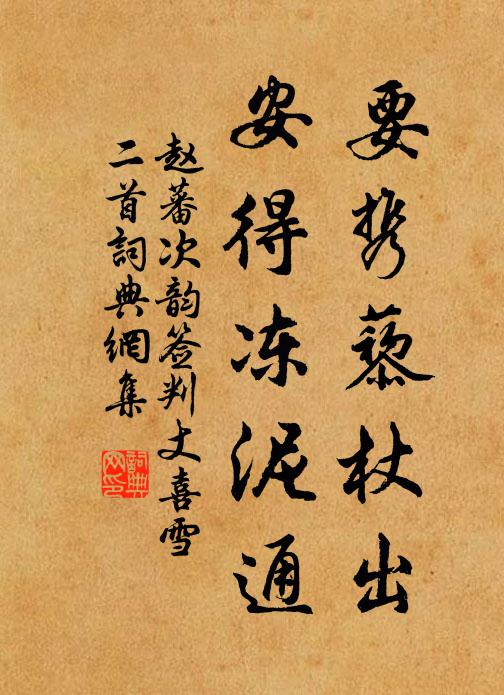 要携藜杖出
安得冻泥通
赵蕃次韵签判丈喜雪
二首詞典網集
詞典網印